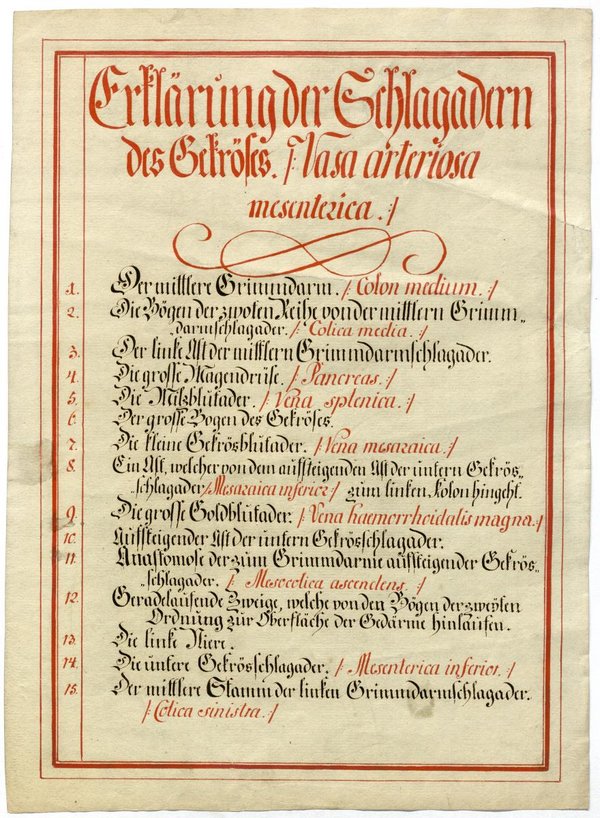 Erklärung der Schlagadern
des Gekröses. /: Vasa arteriosa
mesenterica. :/
1. Der mittlere Grimmdarm. /: Colon medium. :/
2. Die Bögen der zwoten Reihe von der mittlern Grimm„
darmschlagader. /: Colica media. :/
3. Der linke Ast der mittlern Grimmdarmschlagader.
4. Die grosse Magendrüse. /: Pancreas. :/
5. Die Milzblutader. /: Vena splenica. :/
6. Der grosse Bogen des Gekröses.
7. Die kleine Gekrösblutader. /: Vena mesaraica. :/
8. Ein Ast, welcher von dem aufsteigenden Ast der untern Gekrös„
schlagader /: Mesaraica inferior :/ zum linken Kolon hingeht.
9. Die grosse Goldblutader. /: Vena haemorrhoidalis magna. :/
10. Aufsteigender Ast der untern Gekrösschlagader.
11. Anastomose der zum Grimmdarme aufsteigender Gekrös„
„schlagader. /: Mesocolica ascendens. :/
12. Geradelaufende Zweige, welche von den Bögen der zweyten
Ordnung zur Oberfläche der Gedärme hinlaufen.
13. Die linke Niere.
14. Die untere Gekrösschlagader. /: Mesenterica inferior. :/
15. Der mittlere Stamm der linken Grimmdarmschlagader.
/: Colica sinistra. :/